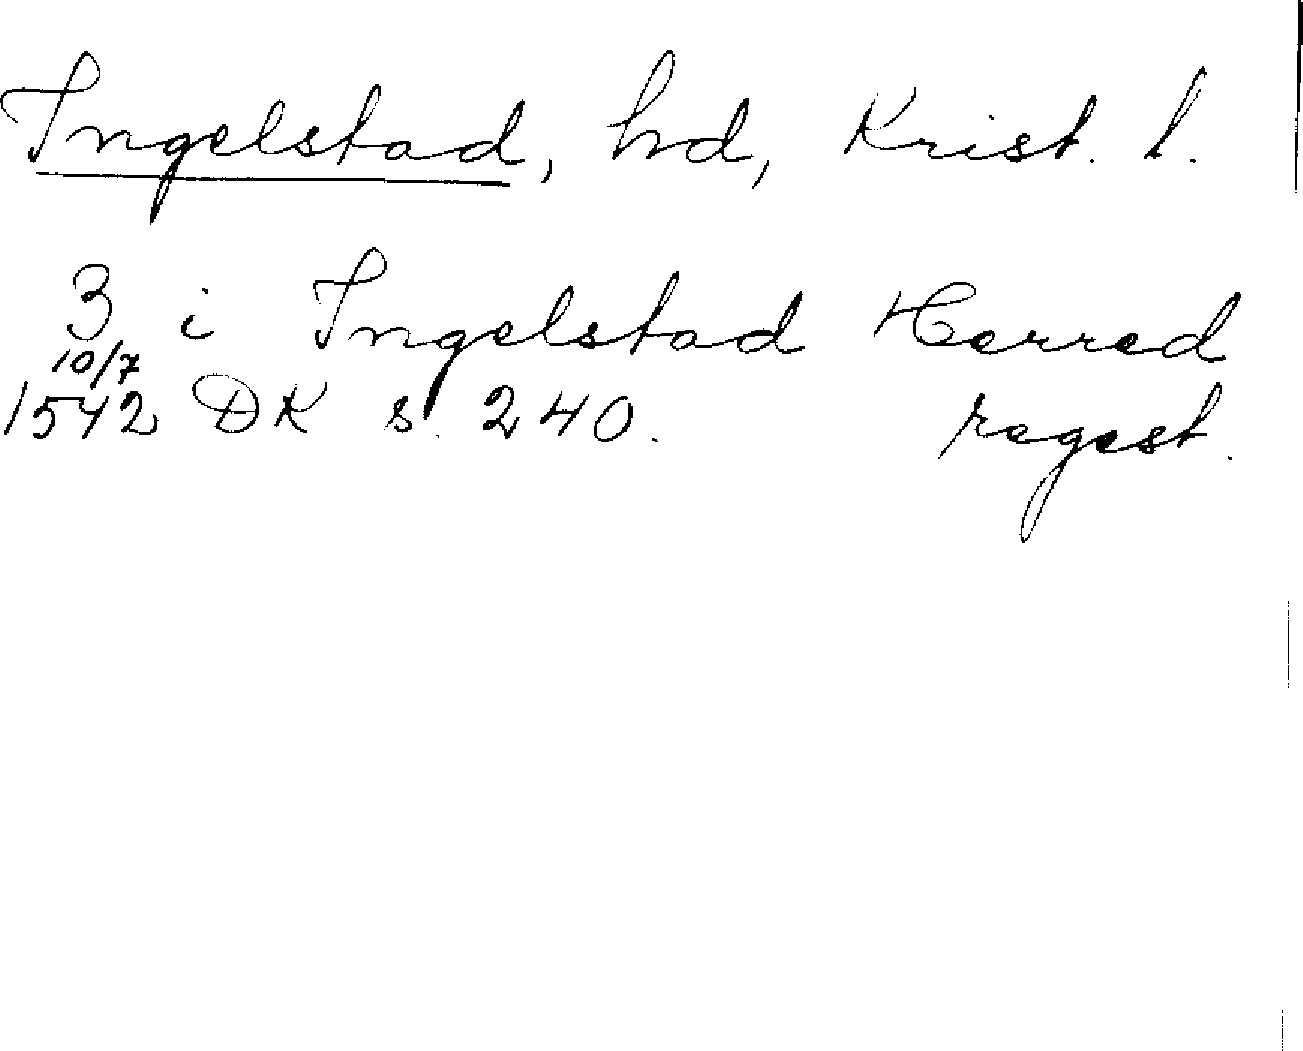 Ingelstad, hd, Krist. l.
3 i Ingelstad Herred
10/7
1542 DK s. 240. regest.